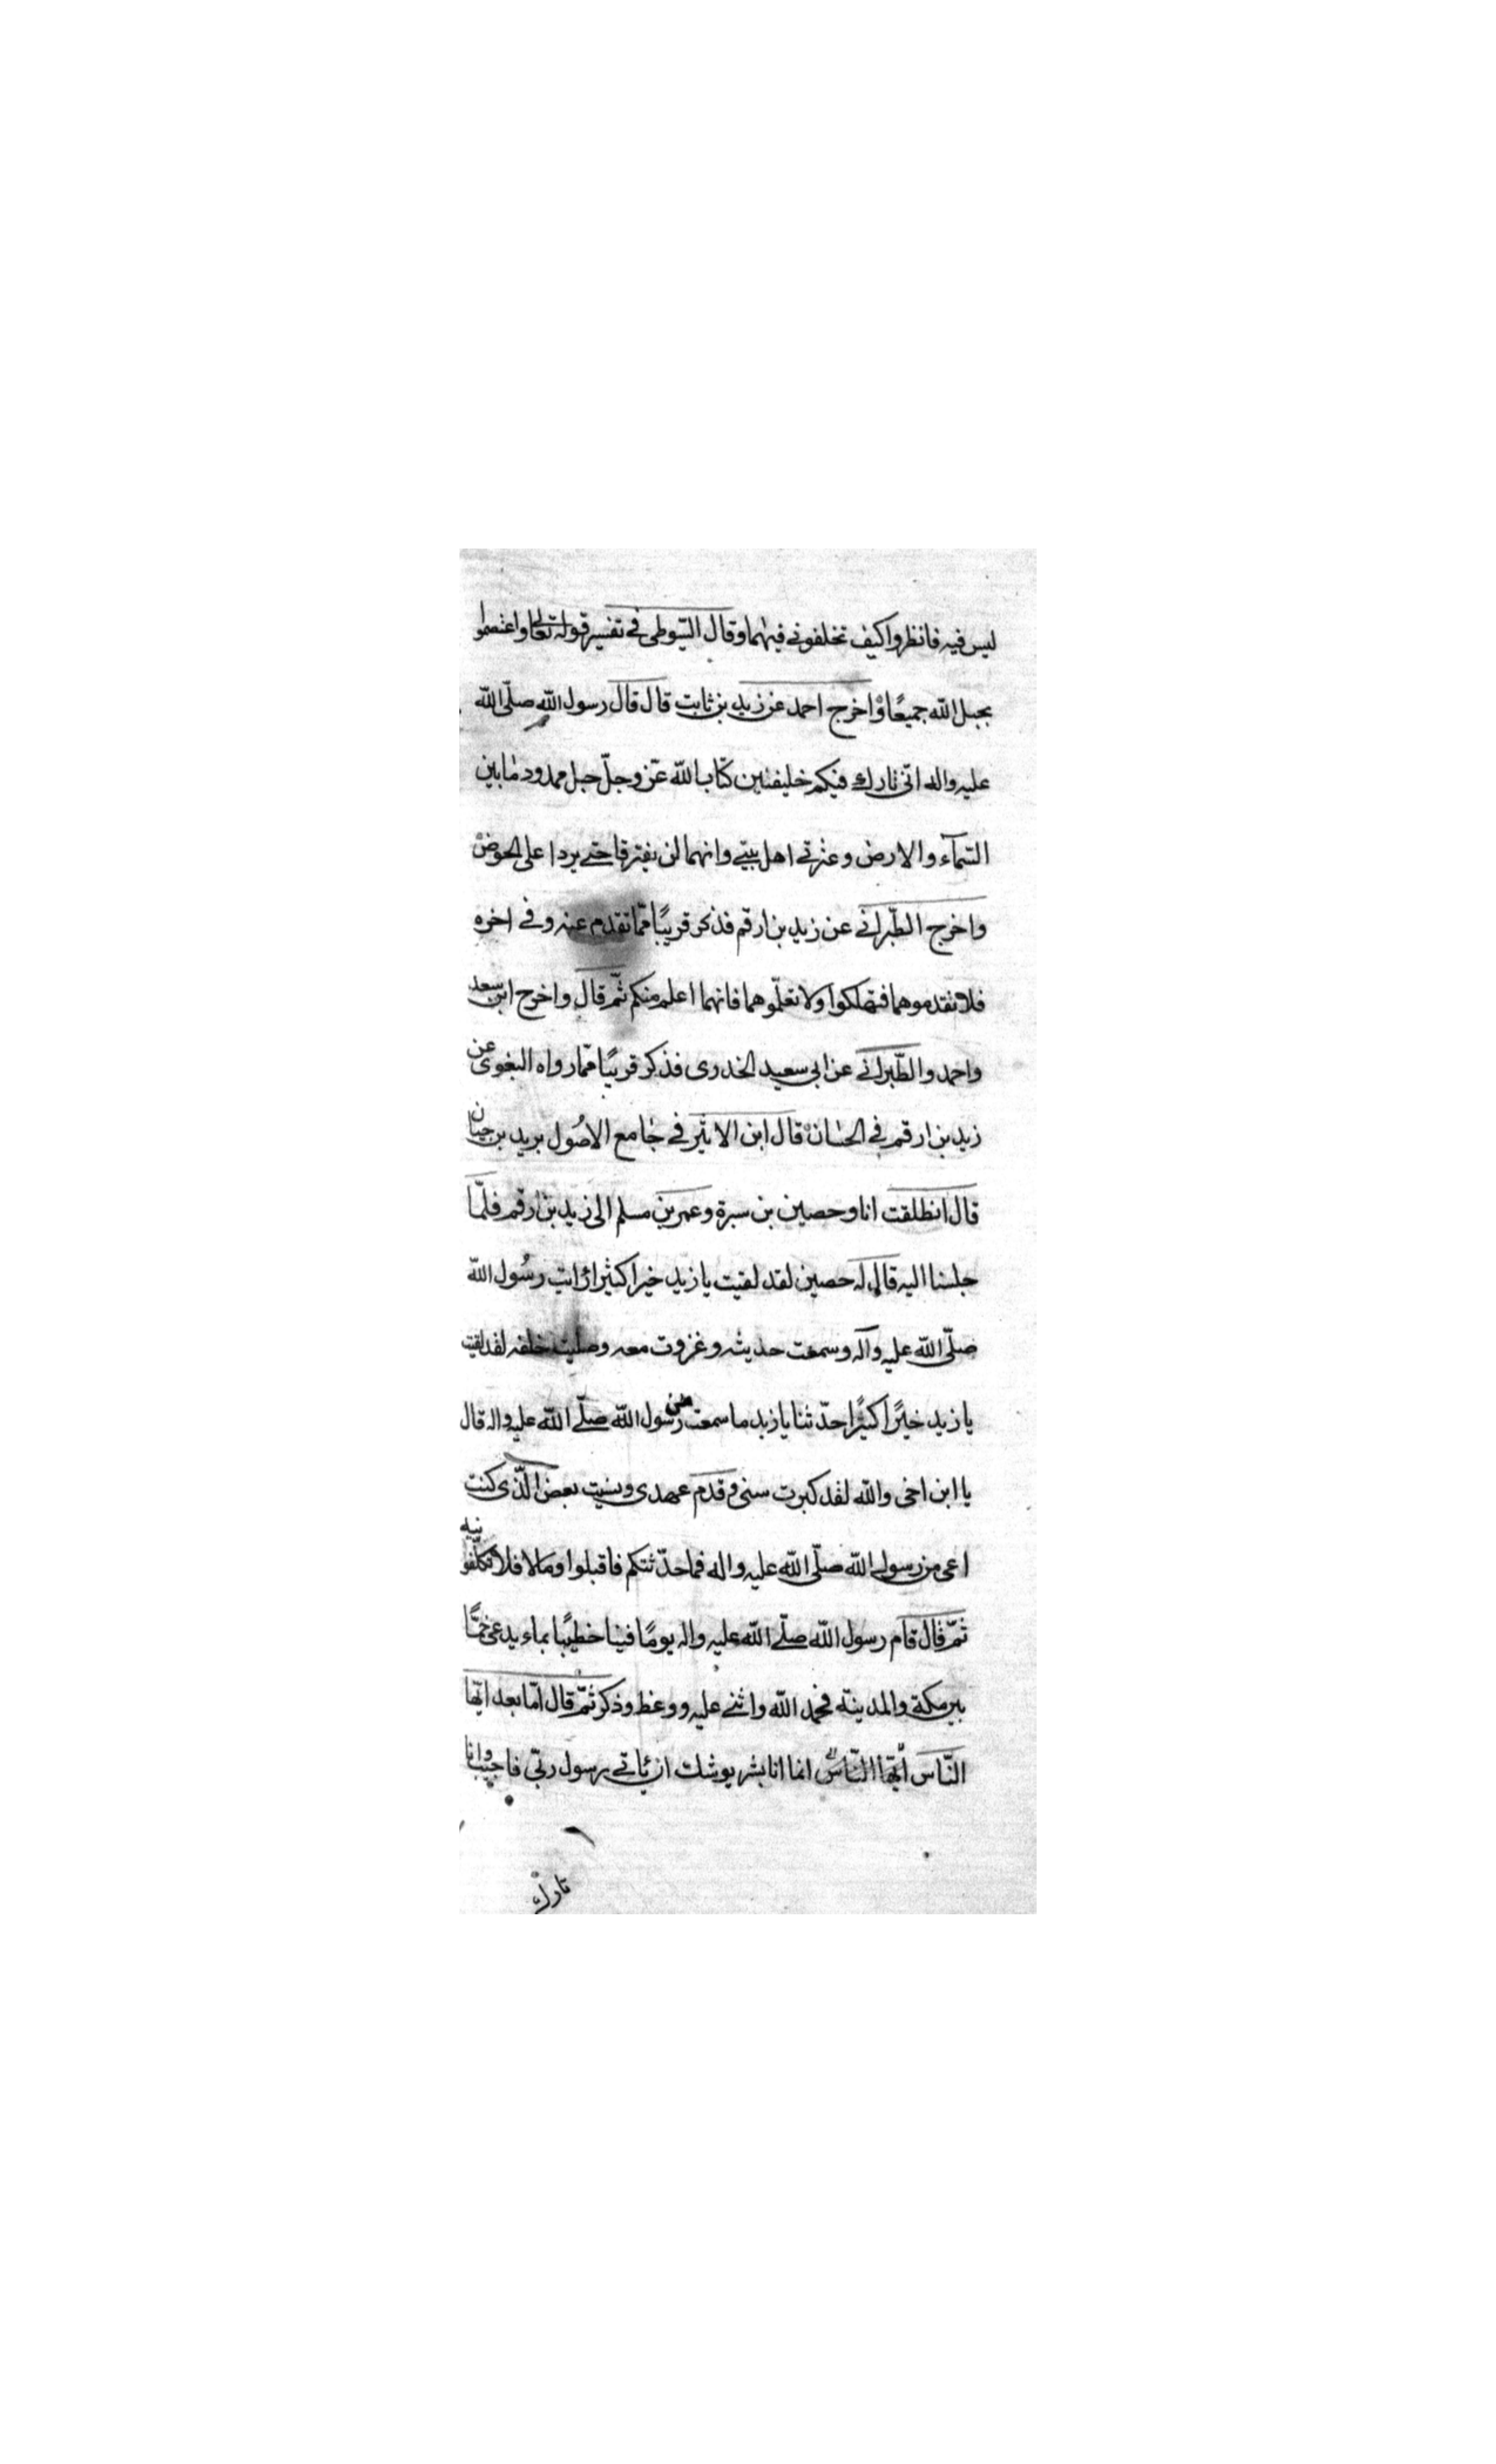 ليس فيه فانظروا كيف تخلفوني فيهما وقال السّيوطي في تفسير قوله تعالى واعتصموا
بحبل الله جميعًا واخرج احمد عن زيد بن ثابت قال قال رسول الله صلّى الله
عليه واله انّى تارك فيكم خليفتين كتاب الله عزّ وجلّ حبل ممدود ما بين
السّمآء والارض وعترتي اهل بيتي وانهما لن يفترقا حتى يردا على الحوض
واخرج الطّبراني عن زيد بن ارقم فذكر قريبًا ممّا تقدم عنه وفي اخره
فلا تقدموهما فتهلكوا ولا تعلّموهما فانهما اعلم منكم ثمّ قال واخرج ابن سعد
واحمد والطّبراني عن ابي سعيد الخدرى فذكر قريبًا ممّا رواه البغوى عن
زيد بن ارقم في الحسان قال ابن الاثير في جامع الاصُول يزيد بن حيان
قال انطلقت انا وحصين بن سبرة وعمر بن مسلم الى زيد بن ارقم فلمّا
جلسنا اليه قال له حصين لقد لقيت يا زيد خيرا كثيرا رايت رسُول الله
صلّى الله عليه وآله وسمعت حديثه وغزوت معه وصليت خلفه لقد لقيت
يا زيد خيرًا كثيرًا حدّثنا يا زيد ما سمعت من رسول الله صلّى الله عليه واله قال
يا ابن اخى والله لقد كبرت سنى وقدم عهدى ونسيت بعض الّذى كنت
اعى من رسول الله صلّى الله عليه واله فما حدّثتكم فاقبلوا وما لا فلا تكلّفونيه
ثمّ قال قام رسول الله صلّى الله عليه واله يومًا فينا خطيبًا بماء يدعى خمًّا
بين مكة والمدينة فحمد الله واثنى عليه ووعظ وذكر ثمّ قال امّا بعد ايّها
النّاس ايّها النّاس انما انا بشر يوشك ان ياتى رسول ربّى فاجيب وانا
تارك